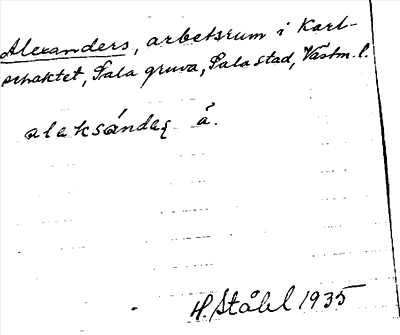 Alexanders, arbetsrum i Karl-
schaktet, Sala gruva, Sala stad, Västm. l.
aleksándaʂ å.
H. Ståhl 1935